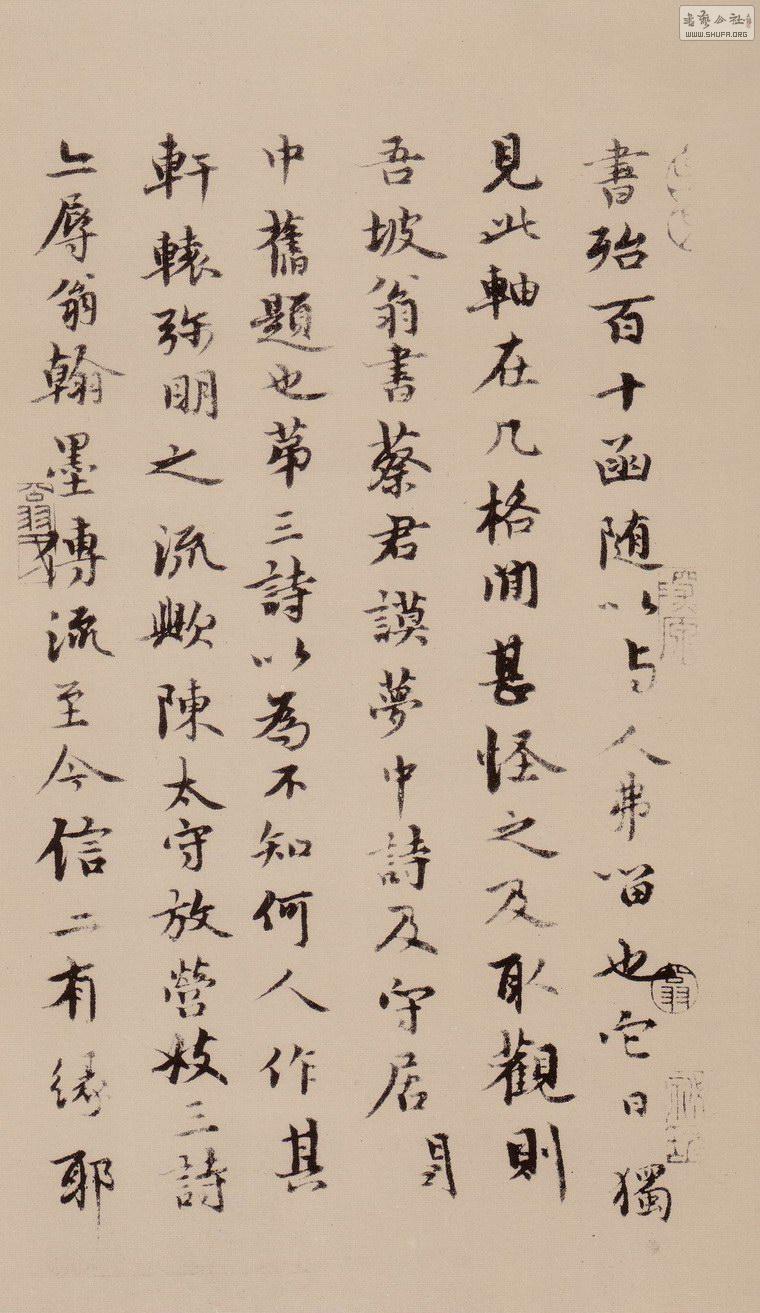 書殆百十函随以与人弗留也它日獨
見此軸在几格間甚怪之及取觀則
吾坡翁書蔡君謨夢中詩及守居閣
中舊題也苐三詩以為不知何人作其
軒轅弥明之流歟陳太守放營妓三詩
亦辱翁翰墨傳流至今信亦有緣耶
WWW.SHUFA.ORG